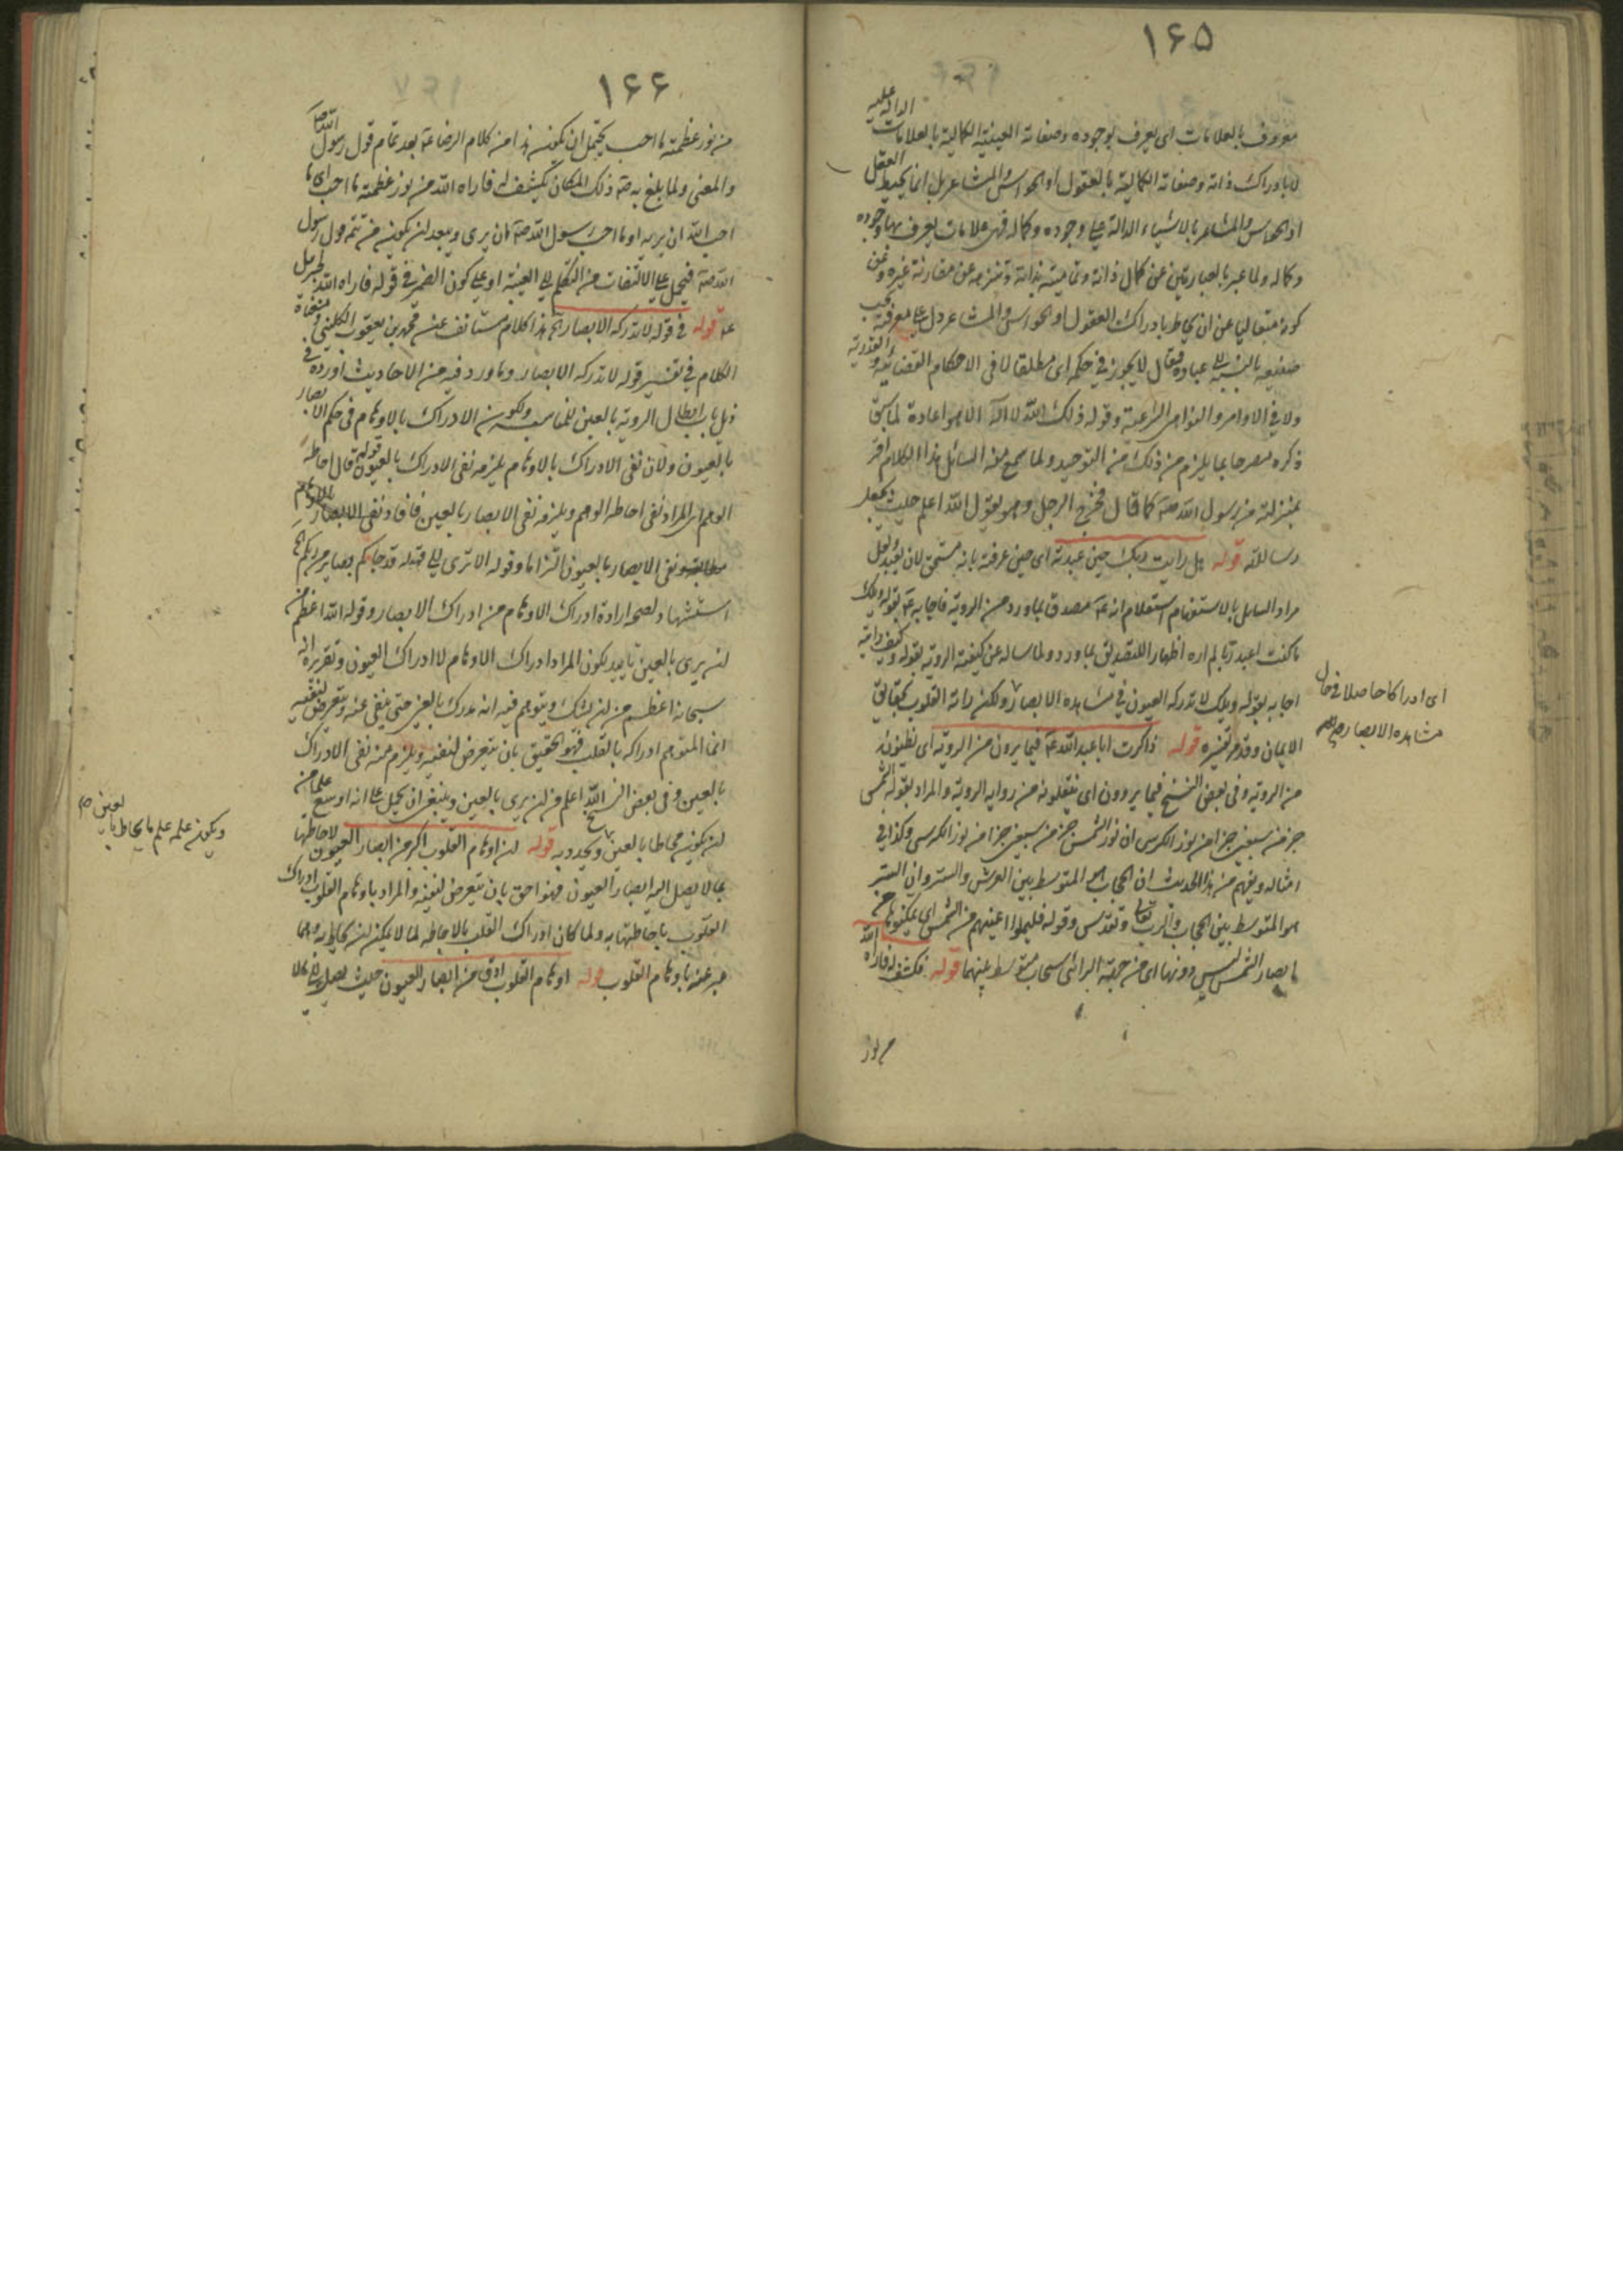 ١۶۵
معروف بالعلامات اى يعرف بوجوده وصفاته العينية الكمالية بالعلامات الدالة عليه
لا بادراك ذاته وصفاته الكمالية بالعقول او الحواس والمشاعر بل انما يحيط العقل
او الحواس والمشاعر بالاشياء الدالة على وجوده وكماله فهى علامات يعرف بها وجوده
وكماله ولما عبر بالعبارتين عن كمال ذاته وتماميته بذاته وتنزهه عن مقارنة غيره وعن
كونه متعاليا عن ان يحاط بادراك العقول او الحواس والمشاعر دل على معرفته بحسب
صنيعه بالنسبة الى عباده فقال لا يجور فى حكمه اى مطلقا لا فى الاحكام القضائية والقدرية
ولا فى الاوامر والنواهى الشرعية وقوله ذلك الله لا اله الا هو اعادة لما سبق
ذكره مصرحا بما يلزم من ذلك من التوحيد ولما سمع منه السائل هذا الكلام اقر
بمنزلته من رسول الله صه كما قال فخرج الرجل وهو يقول الله اعلم حيث يجعل
رسالته قوله هل رايت ربك حين عبدته اى حين عرفته بانه مستحق لان يعبد ولعل
مراد السايل بالاستفهام استعلام انه عه مصدق بما ورد من الروية فاجابه عه بقوله ويلك
ما كنت اعبد ربا لم اره اظهارا للتصديق بما ورد ولما ساله عن كيفية الروية بقوله وكيف رايته
اجابه بقوله ويلك لا تدركه العيون فى مشاهدة الابصار ولكن راته القلوب بحقايق
الايمان وقد مر تفسيره قوله ذاكرت ابا عبد الله عه فيما يرون من الروية اى يظنون
من الروية وفى بعض النسخ فيما يروون اى ينقلونه من رواية الروية والمراد بقوله الشمس
جزء من سبعين جزءا من نور الكرسى ان نور الشمس جزء من سبعين جزءا من نور الكرسى وكذا فى
امثاله ويفهم من هذا الحديث ان الحجاب هو المتوسط بين العرش والستر وان الستر
هو المتوسط بين الحجاب والرب تعالى وتقدس وقوله فليملوا اعينهم من الشمس اى يمكنوها من
ابصار الشمس ليس دونها اى من جهة الرائى سحاب متوسط بينهما قوله فكشف له فاراه الله
من نور
اى ادراكا حاصلا فى حال
مشاهدة الابصار
١۶۶
من نور عظمته ما احب يحتمل ان يكون هذا من كلام الرضا عه بعد تمام قول رسول الله صه
والمعنى ولما بلغ به صه ذلك المكان يكشف له فاراه الله من نور عظمته ما احب اى ما
احب الله ان يريه او ما احب رسول الله صه ان يرى ويبعد ان يكون من تتمة قول رسول
الله صه فيحمل على الالتفات من التكلم الى الغيبة او على كون الضمير فى قوله فاراه الله لجبرئيل
عه قوله فى قوله لا تدركه الابصار الخ هذا كلام مستانف عن محمد بن يعقوب الكلينى
الكلام فى تفسير قوله لا تدركه الابصار وما ورد فيه من الاحاديث اورده فى
ذيل باب ابطال الروية بالعين للمناسبة ولكون الادراك بالاوهام فى حكم الابصار
بالعيون ولان نفى الادراك بالاوهام يلزمه نفى الادراك بالعيون قوله قال احاطة
الوهم اى المراد نفى احاطة الوهم ويلزمه نفى الابصار بالعين فافاد نفى الابصار بالاوهام
مطابقة ونفى الابصار بالعيون التزاما وقوله الا ترى الى قوله قد جاءكم بصاير من ربكم الخ
استشهاد لصحة ارادة ادراك الاوهام من ادراك الابصار وقوله الله اعظم من
ان يرى بالعين تاييد لكون المراد ادراك الاوهام لا ادراك العيون وتقريره انه
سبحانه اعظم من ان يشك ويتوهم فيه انه مدرك بالعين حتى ينفى عنه ويتعرض لنفيه
انما المتوهم ادراكه بالقلب فهو الحقيق بان يتعرض لنفيه ويلزم منه نفى الادراك
بالعين وفى بعض النسخ الله اعلم من ان يرى بالعين وينبغى ان يحمل على انه اوسع علما من
ان يكون محاطا بالعين ويحدد به قوله ان اوهام القلوب اكبر من ابصار العيون لاحاطتها
بما لا يصل اليه ابصار العيون فهو احق بان يتعرض لنفيه والمراد باوهام القلوب ادراك
القلوب باحاطتها به ولما كان ادراك القلب بالاحاطة لما لا يمكن ان يحاط به وهما
عبر عنه باوهام القلوب قوله اوهام القلوب ادق من ابصار العيون حيث يصل
ويكون علمه علم ما يحاط بالعين